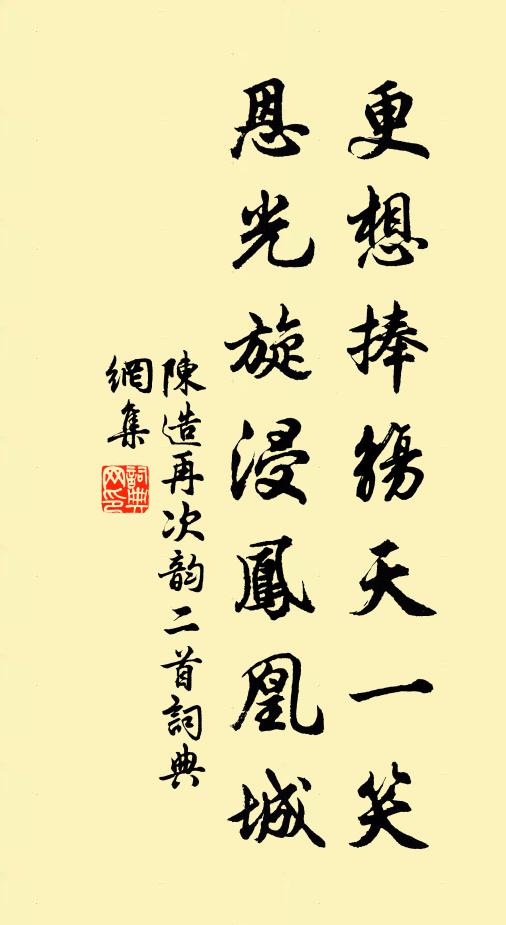 更想捧觴天一笑
恩光旋浸鳳凰城
陳造再次韵二首詞典
網集
詞典網印